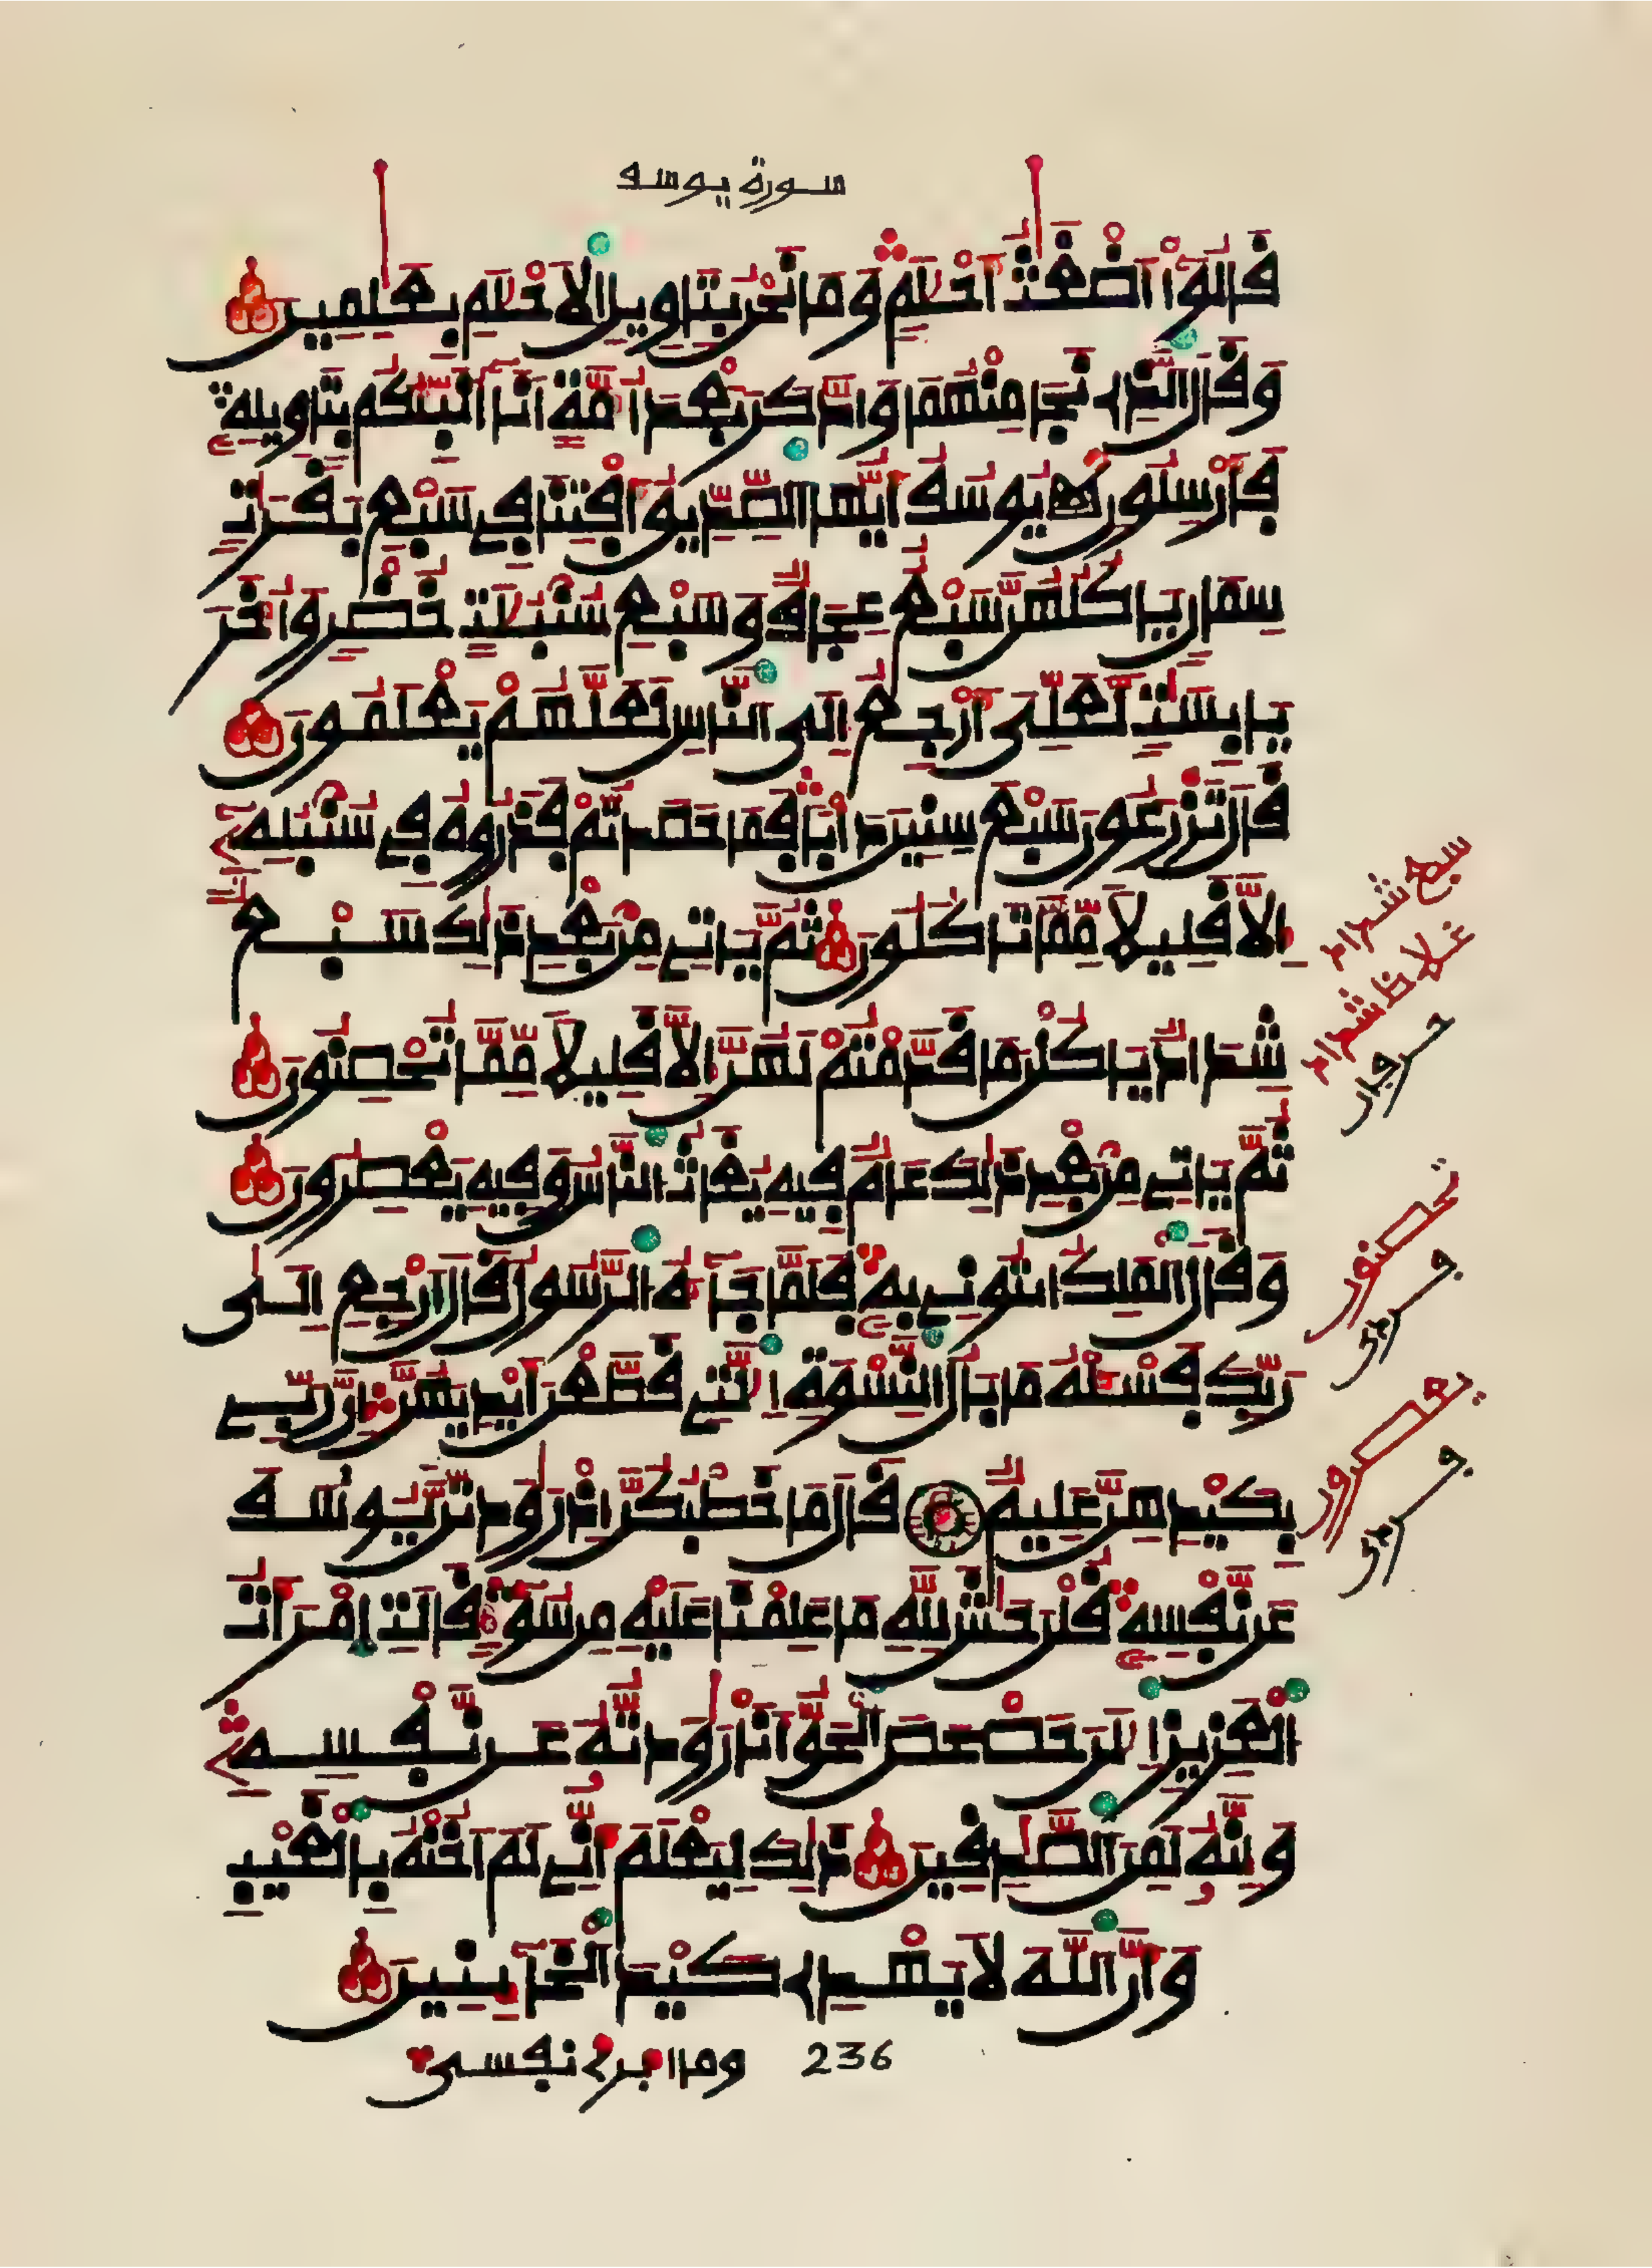 سورة يوسف
قَالُوٓاْ أَضْغَٰثُ أَحْلَٰمٖ وَمَا نَحْنُ بِتَاوِيلِ اِلَاحْلَٰمِ بِعَٰلِمِينَ
وَقَالَ اَلذِے نَجَا مِنْهُمَا وَادَّكَرَ بَعْدَ أُمَّةٍ اَنَآ أُنَبِّئُكُم بِتَاوِيلِهِۦ
فَأَرْسِلُونِ يُوسُفُ أَيُّهَا اَلصِّدِّيقُ أَفْتِنَا فِے سَبْعِ بَقَرَٰتٖ
سِمَانٖ يَاكُلُهُنَّ سَبْعٌ عِجَافٞ وَسَبْعِ سُنۢبُلَٰتٍ خُضْرٖ وَأُخَرَ
يَابِسَٰتٖ لَّعَلِّىَ أَرْجِعُ إِلَى اَلنَّاسِ لَعَلَّهُمْ يَعْلَمُونَ
قَالَ تَزْرَعُونَ سَبْعَ سِنِينَ دَأْباٗ فَمَا حَصَدتُّمْ فَذَرُوهُ فِے سُنۢبُلِهِۦٓ
إِلَّا قَلِيلاٗ مِّمَّا تَاكُلُونَ ثُمَّ يَاتِے مِنۢ بَعْدِ ذَٰلِكَ سَبْعٞ
شِدَادٞ يَاكُلْنَ مَا قَدَّمْتُمْ لَهُنَّ إِلَّا قَلِيلاٗ مِّمَّا تُحْصِنُونَ
ثُمَّ يَاتِے مِنۢ بَعْدِ ذَٰلِكَ عَامٞ فِيهِ يُغَاثُ اُلنَّاسُ وَفِيهِ يَعْصِرُونَ
وَقَالَ اَلْمَلِكُ اُئْتُونِے بِهِۦ فَلَمَّا جَآءَهُ اُلرَّسُولُ قَالَ اَرْجِعِ اِلَىٰ
رَبِّكَ فَسْـَٔلْهُ مَا بَالُ اُلنِّسْوَةِ اِلَّٰتِے قَطَّعْنَ أَيْدِيَهُنَّ إِنَّ رَبِّے
بِكَيْدِهِنَّ عَلِيمٞ قَالَ مَا خَطْبُكُنَّ إِذْ رَٰوَدتُّنَّ يُوسُفَ
عَن نَّفْسِهِۦ قُلْنَ حَٰشَ لِلهِ مَا عَلِمْنَا عَلَيْهِ مِن سُوٓءٖ قَالَتِ اِمْرَأَتُ
اُلْعَزِيزِ اِلَٰنَ حَصْحَصَ اَلْحَقُّ أَنَا رَٰوَدتُّهُۥ عَن نَّفْسِهِۦ
وَإِنَّهُۥ لَمِنَ اَلصَّٰدِقِينَ ذَٰلِكَ لِيَعْلَمَ أَنِّے لَمَ اَخُنْهُ بِالْغَيْبِ
وَأَنَّ اَللَّهَ لَا يَهْدِے كَيْدَ اَلْخَآئِنِينَ
236 وما أبرئ نفسى
سبع شداد
غلاظ شداد
تحصنون
يعصرون